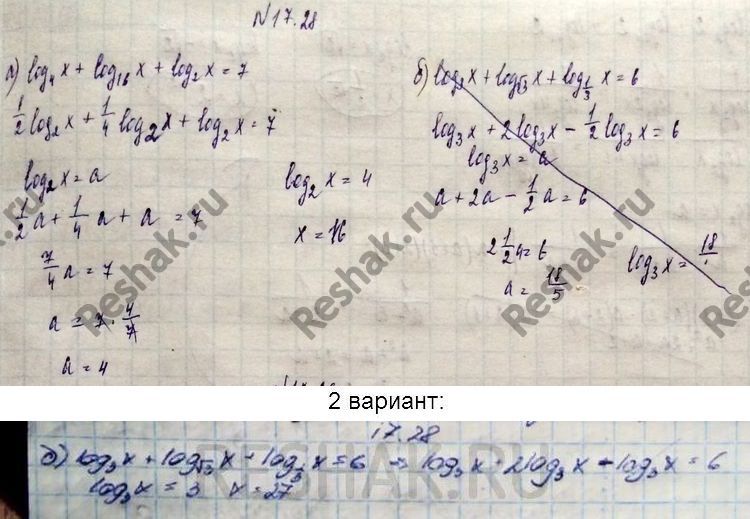 №17.28
а) log₄x + log₁₆x + log₂x = 7
½log₂x + ¼log₂x + log₂x = 7
log₂x = a
½a + ¼a + a = 7
7/4 a = 7
a = 7 · 4/7
a = 4
log₂x = 4
x = 16
б) log₃x + log√₃x + log⅓x = 6
log₃x + 2log₃x - ½log₃x = 6
log₃x = a
a + 2a - ½a = 6
2½a = 6
a = 18/5
log₃x = 18/
2 вариант:
17.28
б) log₃x + log√₃x - log⅓x = 6 ⇒ log₃x + 2log₃x - log₃x = 6
log₃x = 3 x = 27
Reshak.ru
Reshak.ru
Reshak.ru
Reshak.ru
RESHAK.RU